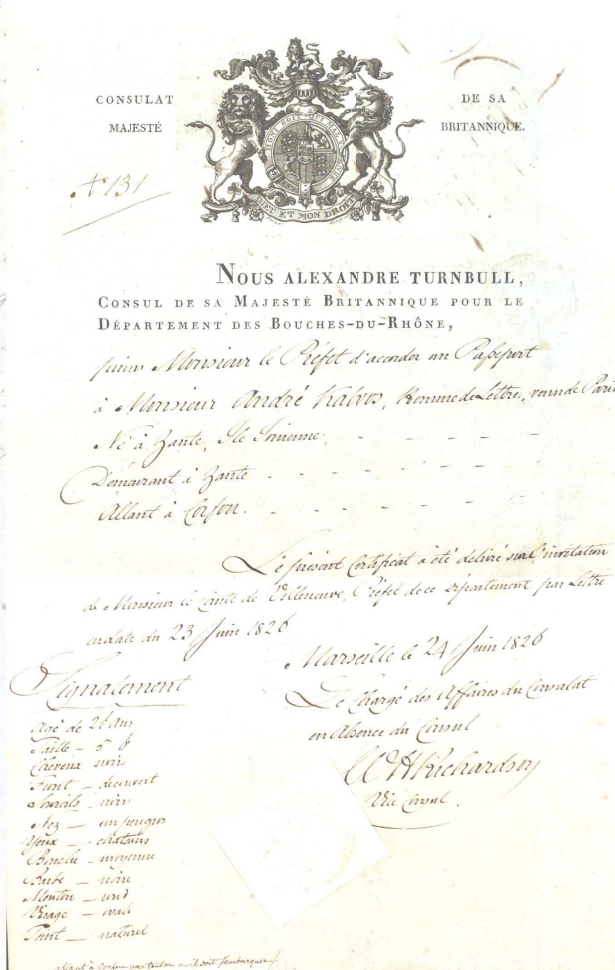 CONSULAT DE SA
MAJESTÉ BRITANNIQUE.
DIEU ET MON DROIT
N° 131
NOUS ALEXANDRE TURNBULL,
CONSUL DE SA MAJESTÉ BRITANNIQUE POUR LE
DÉPARTEMENT DES BOUCHES-DU-RHÔNE,
prions Monsieur le Préfet d'accorder un Passeport
à Monsieur André Kalvos, homme de Lettres, venu de Paris
Né à Zante, Ile Ionienne, - - - - -
Demeurant à Zante - - - - - -
Allant à Corfou. - - - - - -
Le présent Certificat a été délivré sur l'invitation
de Monsieur le Comte de Villeneuve, Préfet de ce Département par Lettre
en date du 23 Juin 1826
Marseille le 24 Juin 1826
Le Chargé des Affaires du Consulat
en Absence du Consul
W H Richardson
Vice Consul.
Signalement
Agé de ans
Taille - 5 6
Cheveux noirs
Front - découvert
Sourcils - noirs
Nez - un peu gros
Yeux - chatains
Bouche - moyenne
Barbe - noire
Menton - rond
Visage - oval
Teint - naturel
allant à Corfou par toulon où il doit s'embarquer